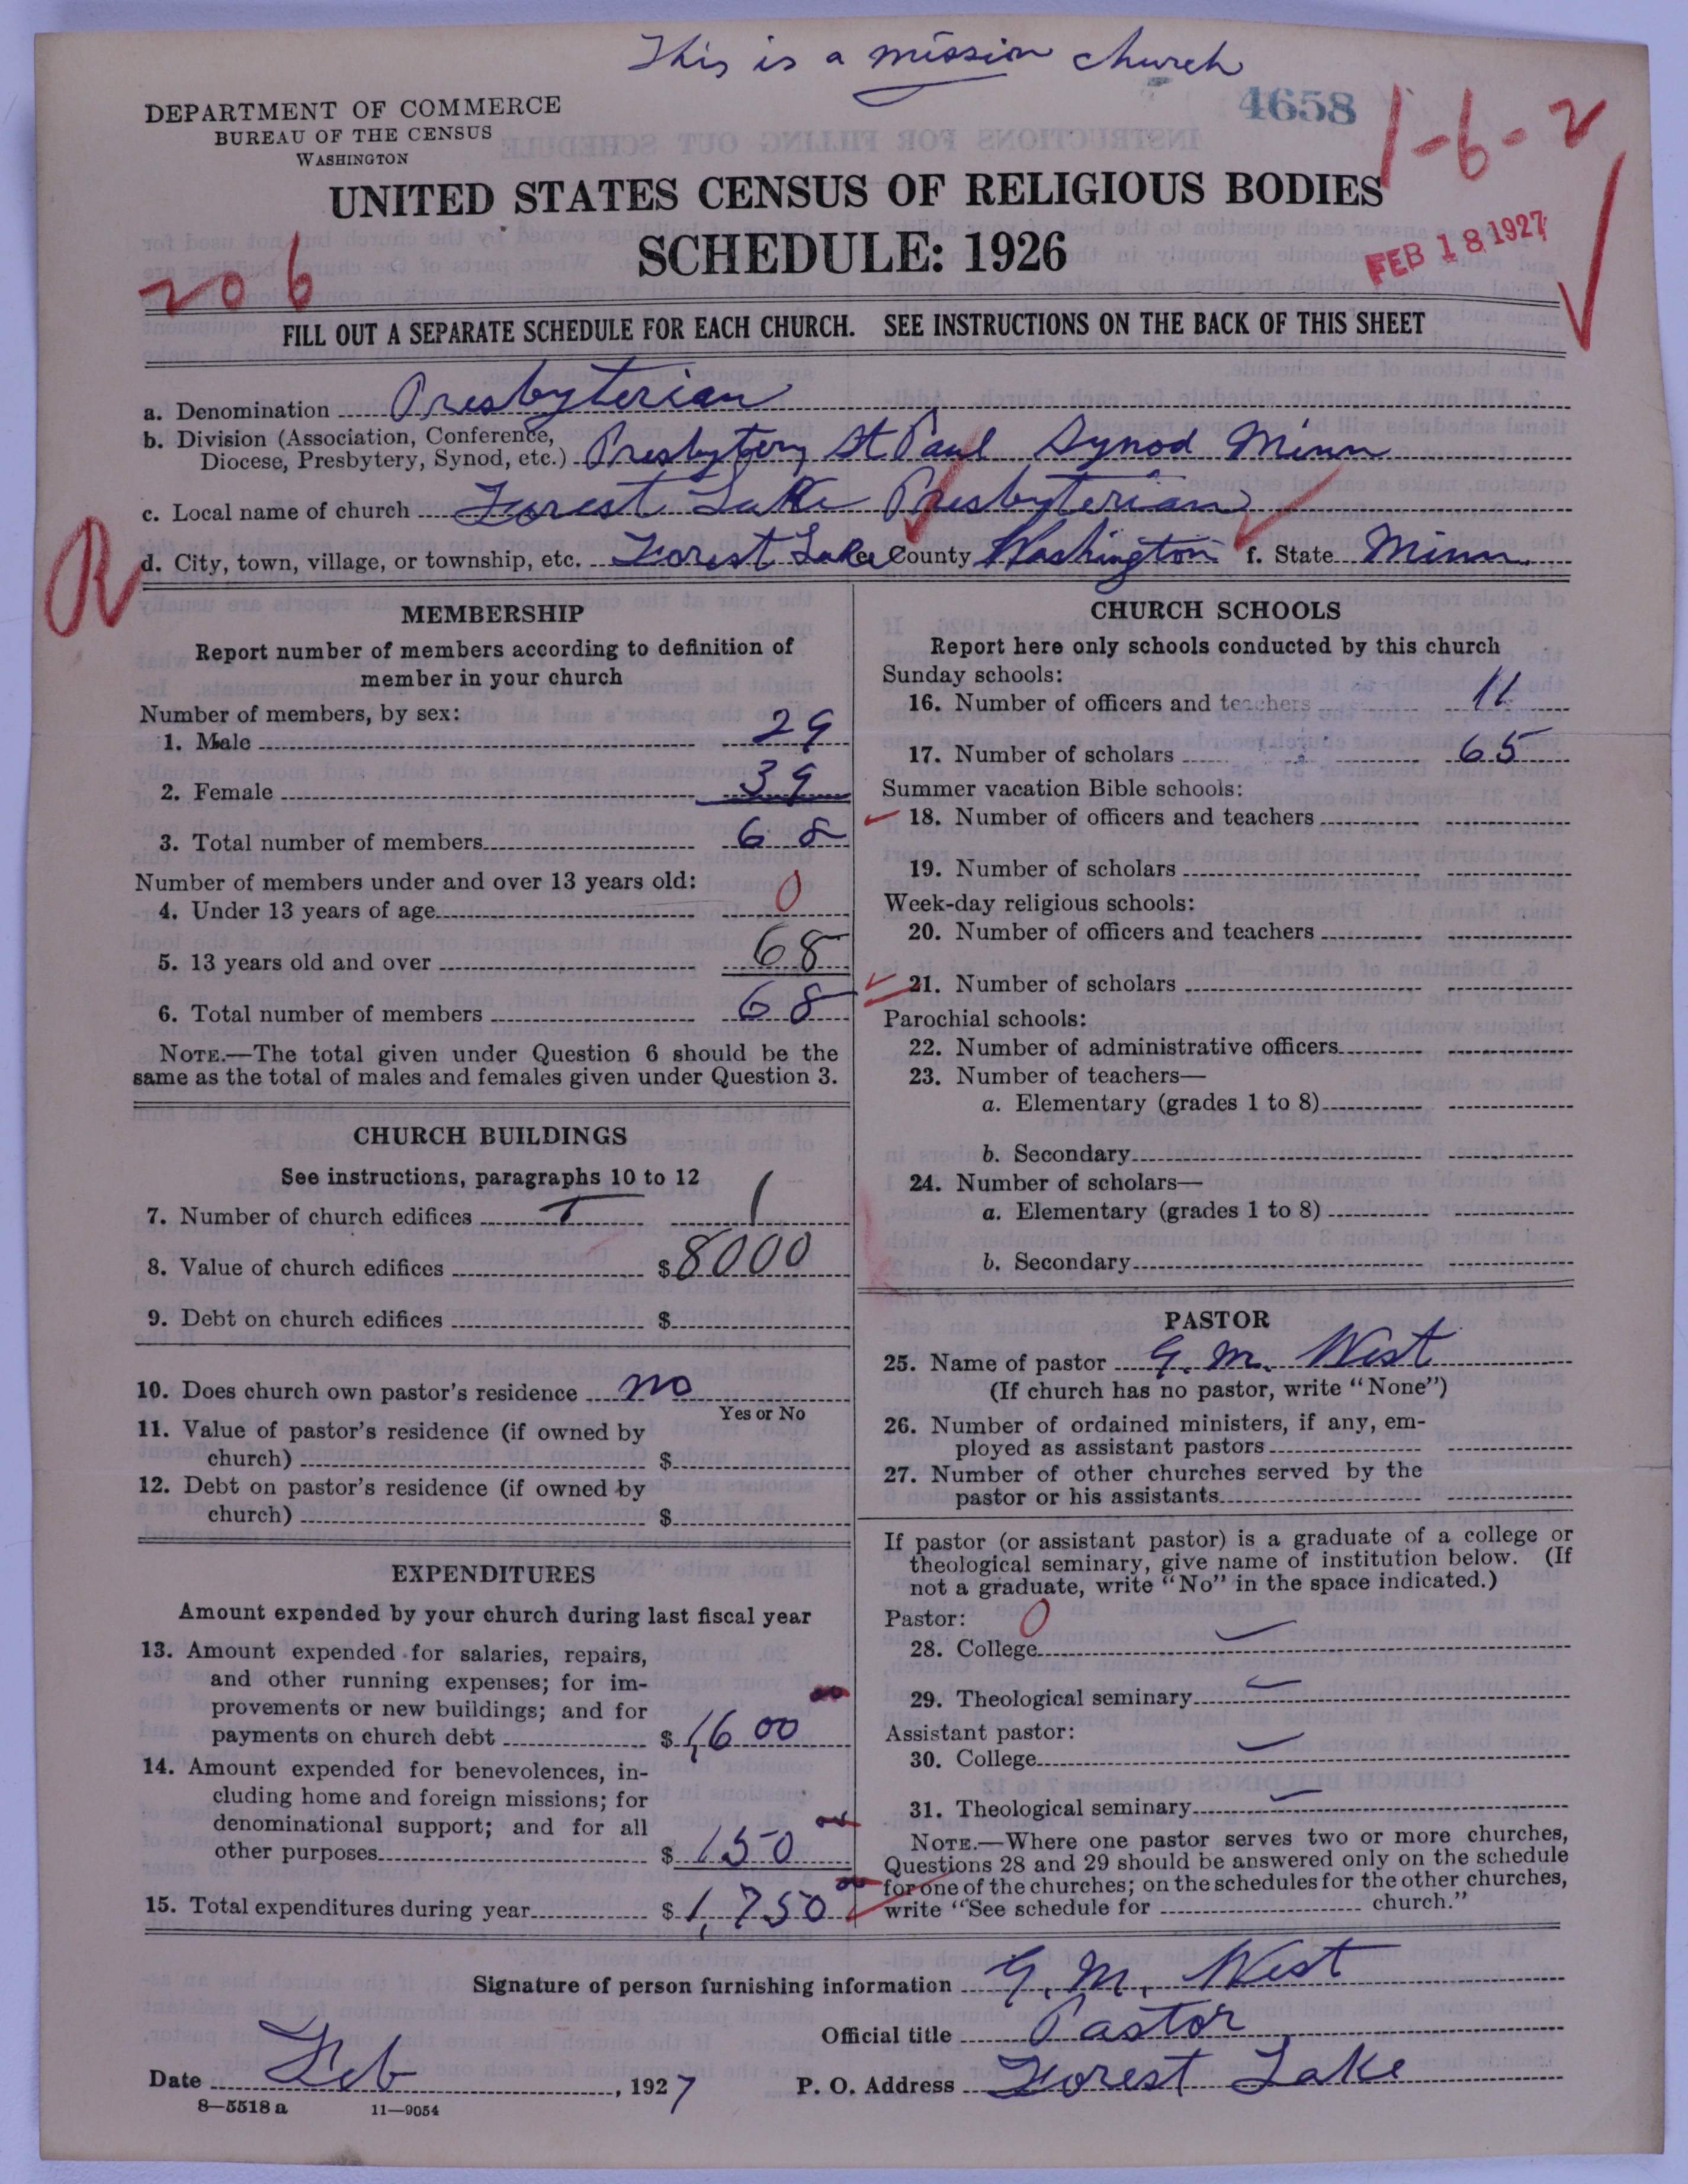 This is a mission church
4658
1-6-2
DEPARTMENT OF COMMERCE
BUREAU OF THE CENSUS
WASHINGTON
UNITED STATES CENSUS OF RELIGIOUS BODIES
SCHEDULE: 1926
FEB 18 1927
206
FILL OUT A SEPARATE SCHEDULE FOR EACH CHURCH. SEE INSTRUCTIONS ON THE BACK OF THIS SHEET
a. Denomination Presbyterian
b. Division (Association, Conference,
Diocese, Presbytery, Synod, etc.) Presbytery St Paul Synod Minn
c. Local name of church Forest Lake Presbyterian
R
d. City, town, village, or township, etc. Forest Lake e. County Washington f. State Minn.
MEMBERSHIP
Report number of members according to definition of
member in your church
Number of members, by sex:
1. Male 29
2. Female 39
3. Total number of members 68
Number of members under and over 13 years old:
4. Under 13 years of age 0
5. 13 years old and over 68
6. Total number of members 68
NOTE.—The total given under Question 6 should be the
same as the total of males and females given under Question 3.
CHURCH BUILDINGS
See instructions, paragraphs 10 to 12
7. Number of church edifices 1
8. Value of church edifices $ 8000
9. Debt on church edifices $
10. Does church own pastor's residence no
Yes or No
11. Value of pastor's residence (if owned by
church) $
12. Debt on pastor's residence (if owned by
church) $
EXPENDITURES
Amount expended by your church during last fiscal year
13. Amount expended for salaries, repairs,
and other running expenses; for im-
provements or new buildings; and for
payments on church debt $ 1,600
14. Amount expended for benevolences, in-
cluding home and foreign missions; for
denominational support; and for all
other purposes $ 150
15. Total expenditures during year $ 1,750
CHURCH SCHOOLS
Report here only schools conducted by this church
Sunday schools:
16. Number of officers and teachers 11
17. Number of scholars 65
Summer vacation Bible schools:
18. Number of officers and teachers
19. Number of scholars
Week-day religious schools:
20. Number of officers and teachers
21. Number of scholars
Parochial schools:
22. Number of administrative officers
23. Number of teachers—
a. Elementary (grades 1 to 8)
b. Secondary
24. Number of scholars—
a. Elementary (grades 1 to 8)
b. Secondary
PASTOR
25. Name of pastor G. M. West
(If church has no pastor, write "None")
26. Number of ordained ministers, if any, em-
ployed as assistant pastors
27. Number of other churches served by the
pastor or his assistants
If pastor (or assistant pastor) is a graduate of a college or
theological seminary, give name of institution below. (If
not a graduate, write "No" in the space indicated.)
Pastor: 0
28. College
29. Theological seminary
Assistant pastor:
30. College
31. Theological seminary
NOTE.—Where one pastor serves two or more churches,
Questions 28 and 29 should be answered only on the schedule
for one of the churches; on the schedules for the other churches,
write "See schedule for church."
Signature of person furnishing information G. M. West
Official title Pastor
Date Feb, 1927 P. O. Address Forest Lake
8—5518 a 11—9054